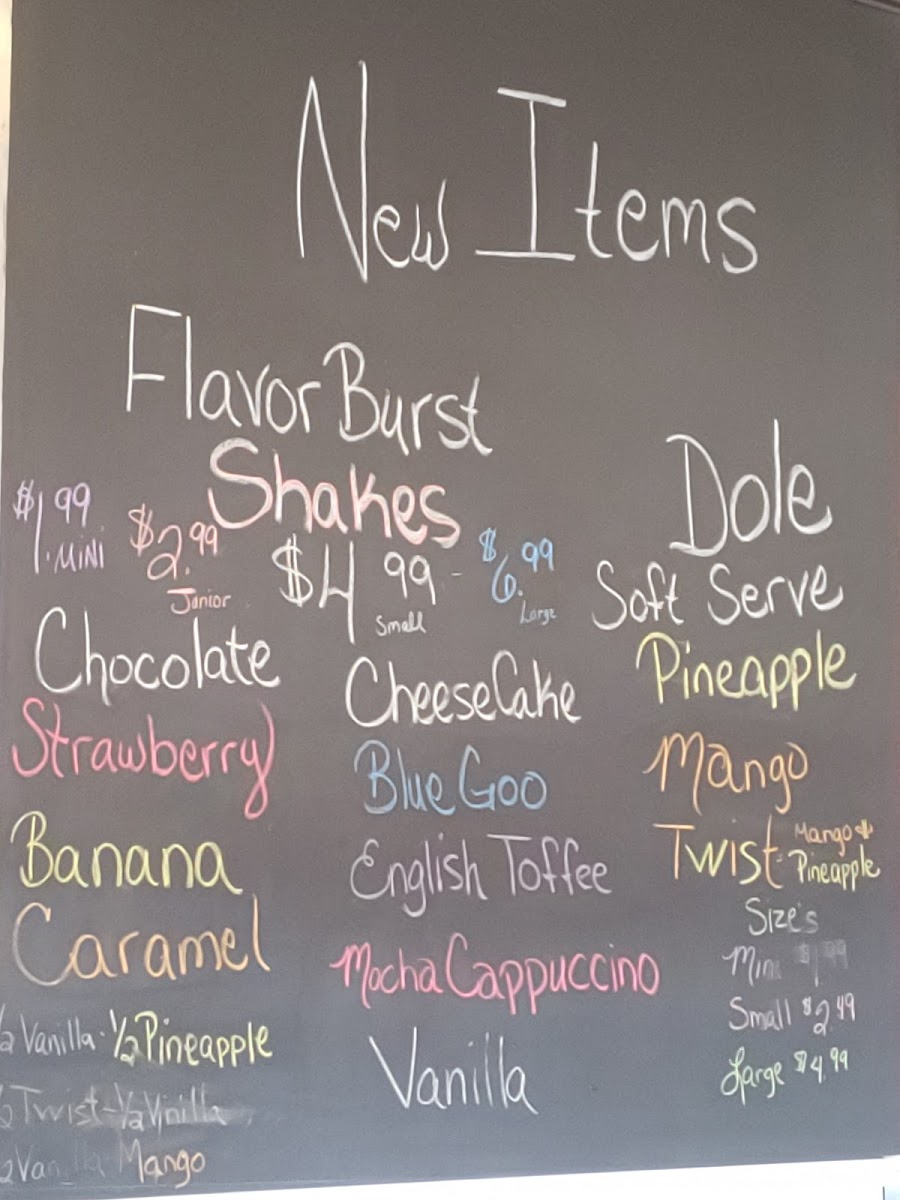 New Items
Flavor Burst
Shakes
$1.99 Mini
$2.99 Junior
$4.99 - Small
$6.99 Large
Chocolate
Strawberry
Banana
Caramel
½ Vanilla - ½ Pineapple
½ Twist - ½ Vinilla
Mango
CheeseCake
Blue Goo
English Toffee
Mocha Cappuccino
Vanilla
Dole
Soft Serve
Pineapple
Mango
Twist - Mango & Pineapple
Size's
Mini
Small $2.49
Large $4.99